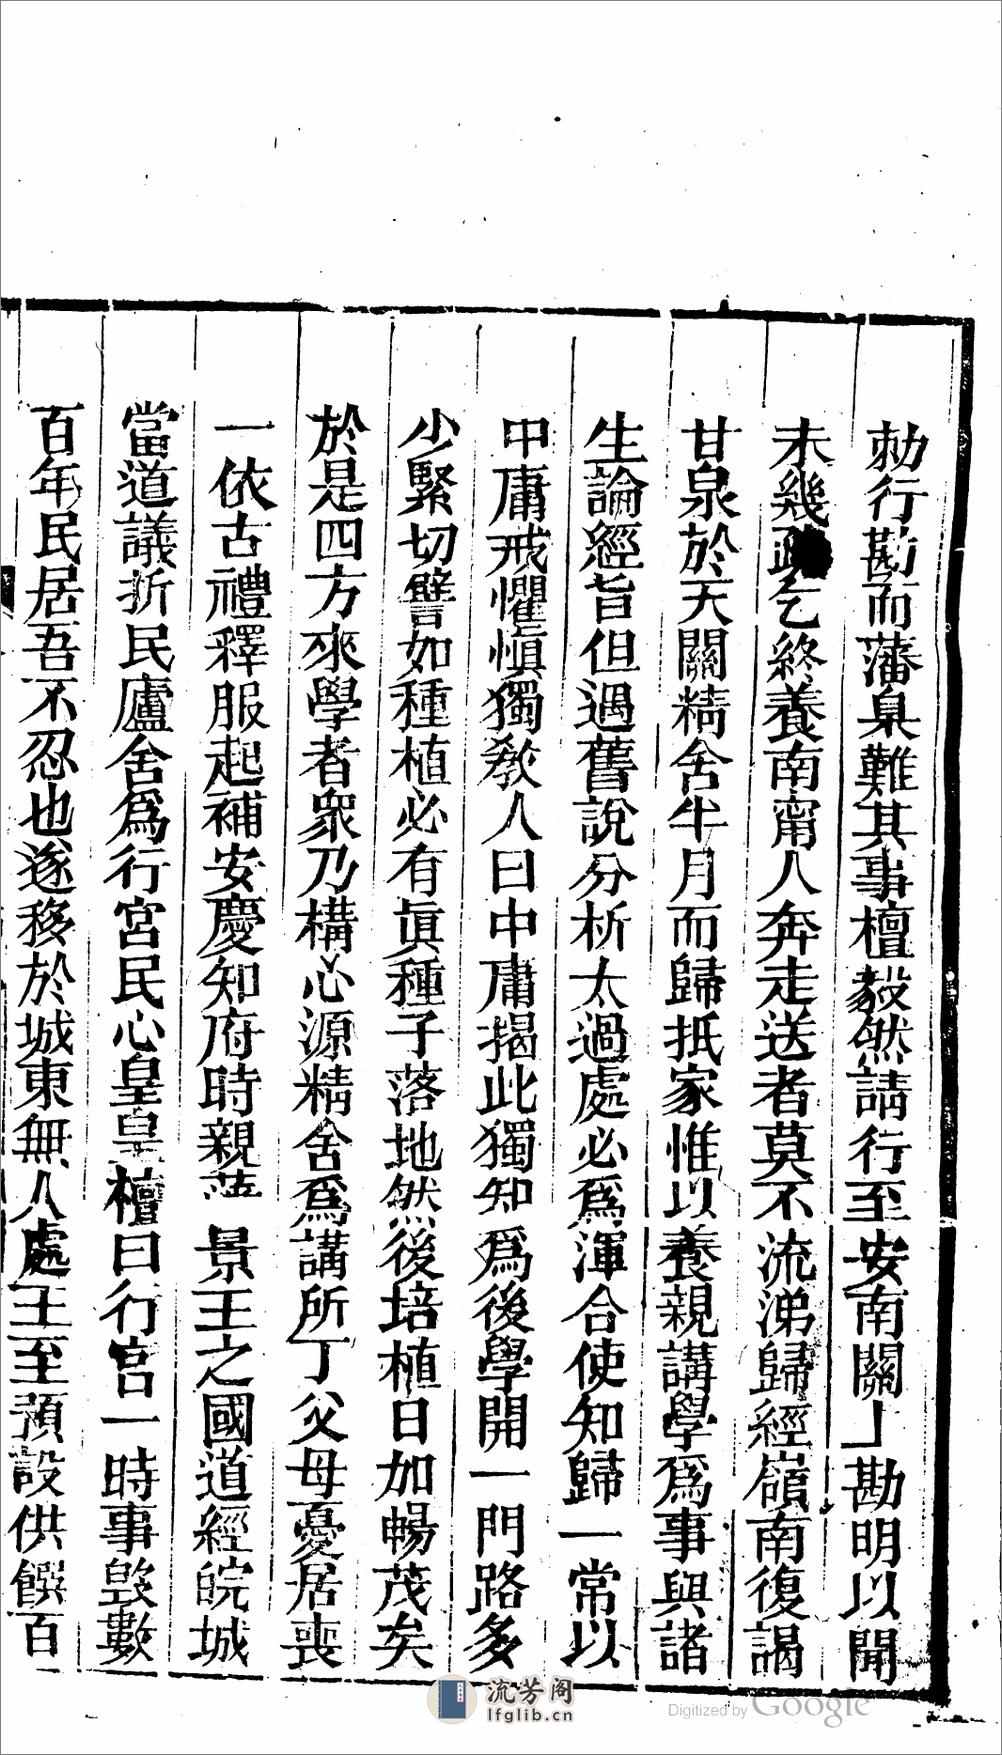 勅行勘而藩臬難其事檀毅然請行至安南關上勘明以聞
未幾疏乞終養南甯人奔走送者莫不流涕歸經嶺南復謁
甘泉於天關精舍半月而歸抵家惟以養親講學爲事與諸
生論經旨但過舊說分析太過處必爲渾合使知歸一常以
中庸戒懼愼獨敎人曰中庸揭此獨知爲後學開一門路多
少緊切譬如種植必有眞種子落地然後培植日加暢茂矣
於是四方來學者衆乃構心源精舍爲講所丁父母憂居喪
一依古禮釋服起補安慶知府時親藩 景王之國道經皖城
當道議折民廬舍爲行宮民心皇皇檀曰行宮一時事毀數
百年民居吾不忍也遂移於城東無人處王至預設供饌百
流芳阁
lfglib.cn
Digitized by Google